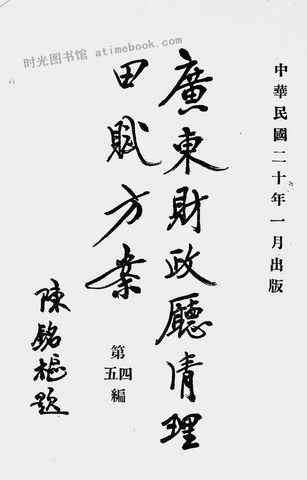 时光图书馆 atimebook.com
中華民國二十年一月出版
廣東財政廳清理
田賦方案
第四五編
陳銘樞題